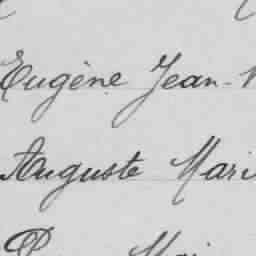 Eugène Jean-
Auguste Mari